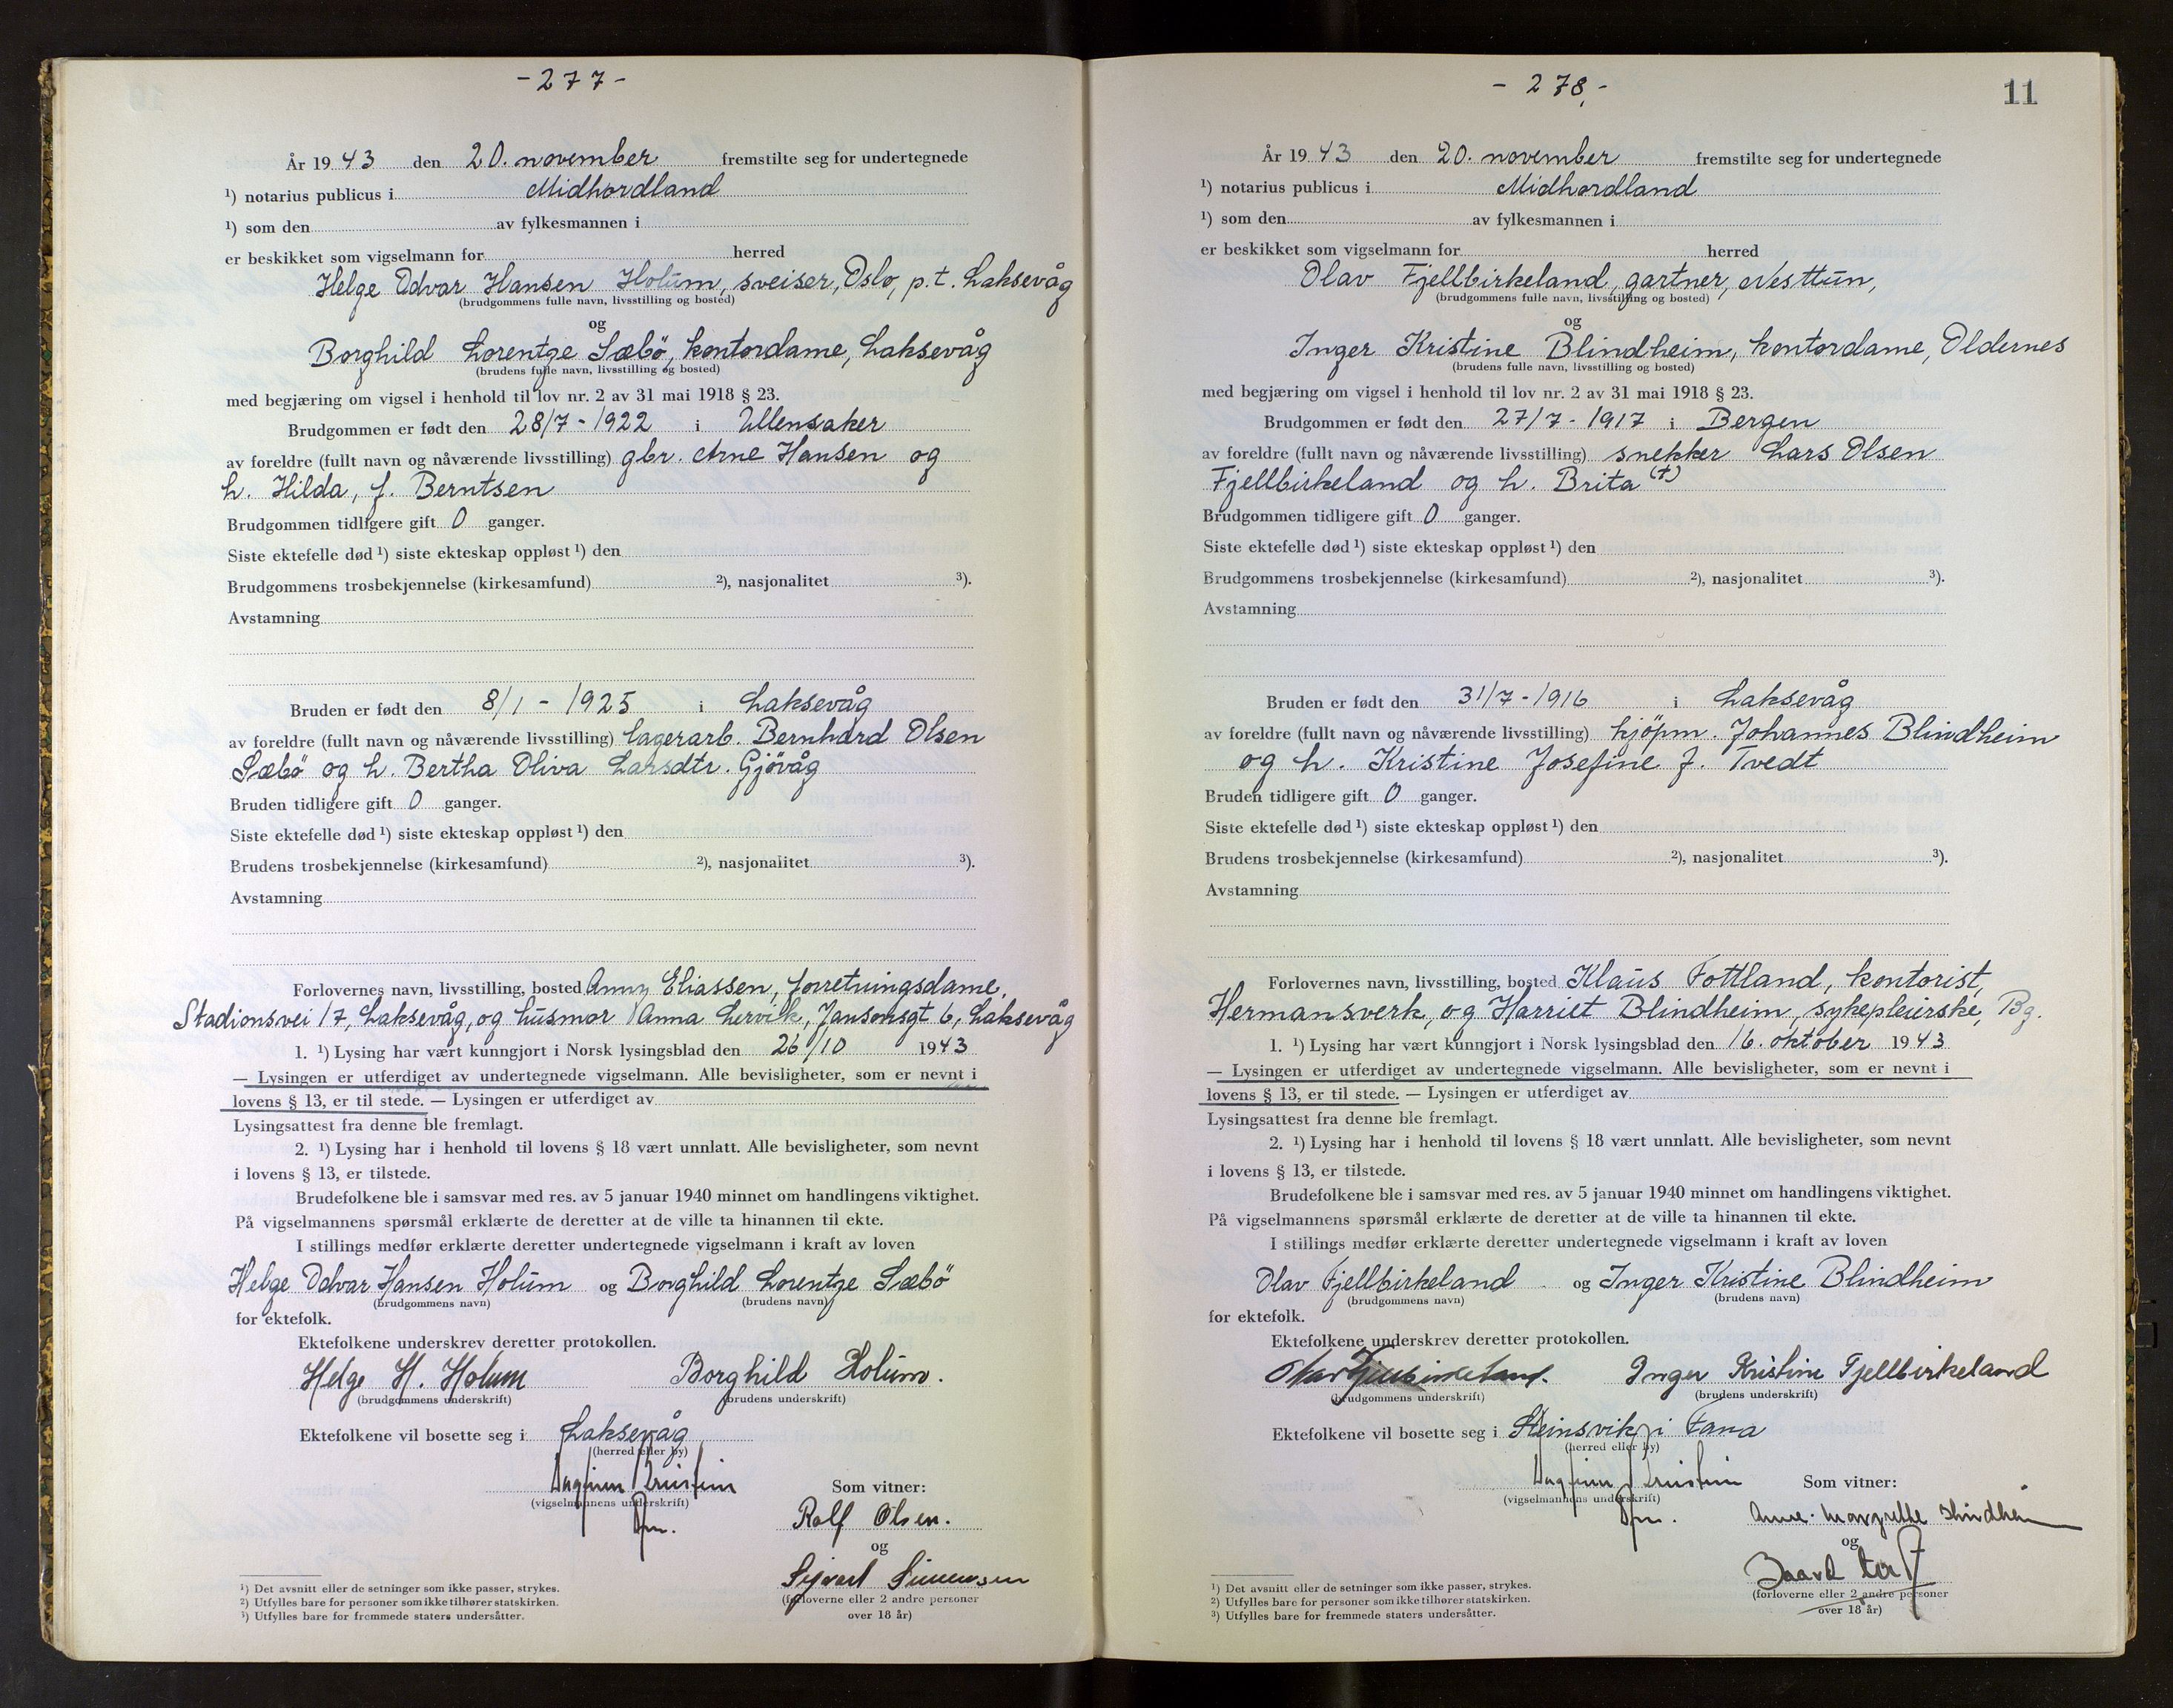 - 277 -
År 1943 den 20. november fremstilte seg for undertegnede
¹) notarius publicus i Midhordland
¹) som den av fylkesmannen i
er beskikket som vigselmann for herred
Helge Odvar Hansen Holum, sveiser, Oslo, p.t. Laksevåg
(brudgommens fulle navn, livsstilling og bosted)
og
Borghild Lorentze Sæbö, kontordame, Laksevåg
(brudens fulle navn, livsstilling og bosted)
med begjæring om vigsel i henhold til lov nr. 2 av 31 mai 1918 § 23.
Brudgommen er født den 28/7 - 1922 i Ullensaker
av foreldre (fullt navn og nåværende livsstilling) gbr. Arne Hansen og
h. Hilda, f. Berntsen
Brudgommen tidligere gift 0 ganger.
Siste ektefelle død ¹) siste ekteskap oppløst ¹) den
Brudgommens trosbekjennelse (kirkesamfund) ²), nasjonalitet ³).
Avstamning
Bruden er født den 8/1 - 1925 i Laksevåg
av foreldre (fullt navn og nåværende livsstilling) lagerarb. Bernhard Olsen
Sæbö og h. Bertha Oliva Larsdtr. Gjövåg
Bruden tidligere gift 0 ganger.
Siste ektefelle død ¹) siste ekteskap oppløst ¹) den
Brudens trosbekjennelse (kirkesamfund) ²), nasjonalitet ³).
Avstamning
Forlovernes navn, livsstilling, bosted Anny Eliassen, forretningsdame,
Stadionsvei 17, Laksevåg, og husmor Anna Lervik, Jansonsgt 6, Laksevåg
1. ¹) Lysing har vært kunngjort i Norsk lysingsblad den 26/10 1943
— Lysingen er utferdiget av undertegnede vigselmann. Alle bevisligheter, som er nevnt i
lovens § 13, er til stede. — Lysingen er utferdiget av
Lysingsattest fra denne ble fremlagt.
2. ¹) Lysing har i henhold til lovens § 18 vært unnlatt. Alle bevisligheter, som nevnt
i lovens § 13, er tilstede.
Brudefolkene ble i samsvar med res. av 5 januar 1940 minnet om handlingens viktighet.
På vigselmannens spørsmål erklærte de deretter at de ville ta hinannen til ekte.
I stillings medfør erklærte deretter undertegnede vigselmann i kraft av loven
Helge Odvar Hansen Holum og Borghild Lorentze Sæbö
(brudgommens navn) (brudens navn)
for ektefolk.
Ektefolkene underskrev deretter protokollen.
Helge H. Holum Borghild Holum.
(brudgommens underskrift) (brudens underskrift)
Ektefolkene vil bosette seg i Laksevåg
(herred eller by)
Som vitner:
(vigselmannens underskrift)
Rolf Olsen.
og
Sigvart Simensen
(forloverne eller 2 andre personer
over 18 år)
¹) Det avsnitt eller de setninger som ikke passer, strykes.
²) Utfylles bare for personer som ikke tilhører statskirken.
³) Utfylles bare for fremmede staters undersåtter.
- 278. -
11
År 1943 den 20. november fremstilte seg for undertegnede
¹) notarius publicus i Midhordland
¹) som den av fylkesmannen i
er beskikket som vigselmann for herred
Olav Fjellbirkeland, gartner, Nesttun,
(brudgommens fulle navn, livsstilling og bosted)
og
Inger Kristine Blindheim, kontordame, Oldernes
(brudens fulle navn, livsstilling og bosted)
med begjæring om vigsel i henhold til lov nr. 2 av 31 mai 1918 § 23.
Brudgommen er født den 27/7 - 1917 i Bergen
av foreldre (fullt navn og nåværende livsstilling) snekker Lars Olsen
Fjellbirkeland og h. Brita (†)
Brudgommen tidligere gift 0 ganger.
Siste ektefelle død ¹) siste ekteskap oppløst ¹) den
Brudgommens trosbekjennelse (kirkesamfund) ²), nasjonalitet ³).
Avstamning
Bruden er født den 31/7 - 1916 i Laksevåg
av foreldre (fullt navn og nåværende livsstilling) kjöpm. Johannes Blindheim
og h. Kristine Josefine f. Tvedt
Bruden tidligere gift 0 ganger.
Siste ektefelle død ¹) siste ekteskap oppløst ¹) den
Brudens trosbekjennelse (kirkesamfund) ²), nasjonalitet ³).
Avstamning
Forlovernes navn, livsstilling, bosted Klaus Tottland, kontorist,
Hermansverk, og Harriet Blindheim, sykepleierske, Bg.
1. ¹) Lysing har vært kunngjort i Norsk lysingsblad den 16. oktober 1943
— Lysingen er utferdiget av undertegnede vigselmann. Alle bevisligheter, som er nevnt i
lovens § 13, er til stede. — Lysingen er utferdiget av
Lysingsattest fra denne ble fremlagt.
2. ¹) Lysing har i henhold til lovens § 18 vært unnlatt. Alle bevisligheter, som nevnt
i lovens § 13, er tilstede.
Brudefolkene ble i samsvar med res. av 5 januar 1940 minnet om handlingens viktighet.
På vigselmannens spørsmål erklærte de deretter at de ville ta hinannen til ekte.
I stillings medfør erklærte deretter undertegnede vigselmann i kraft av loven
Olav Fjellbirkeland og Inger Kristine Blindheim
(brudgommens navn) (brudens navn)
for ektefolk.
Ektefolkene underskrev deretter protokollen.
Olav Fjellbirkeland. Inger Kristine Fjellbirkeland
(brudgommens underskrift) (brudens underskrift)
Ektefolkene vil bosette seg i Steinsvik i Fana
(herred eller by)
Som vitner:
(vigselmannens underskrift)
Anne-Margrethe Blindheim
og
(forloverne eller 2 andre personer
over 18 år)
¹) Det avsnitt eller de setninger som ikke passer, strykes.
²) Utfylles bare for personer som ikke tilhører statskirken.
³) Utfylles bare for fremmede staters undersåtter.